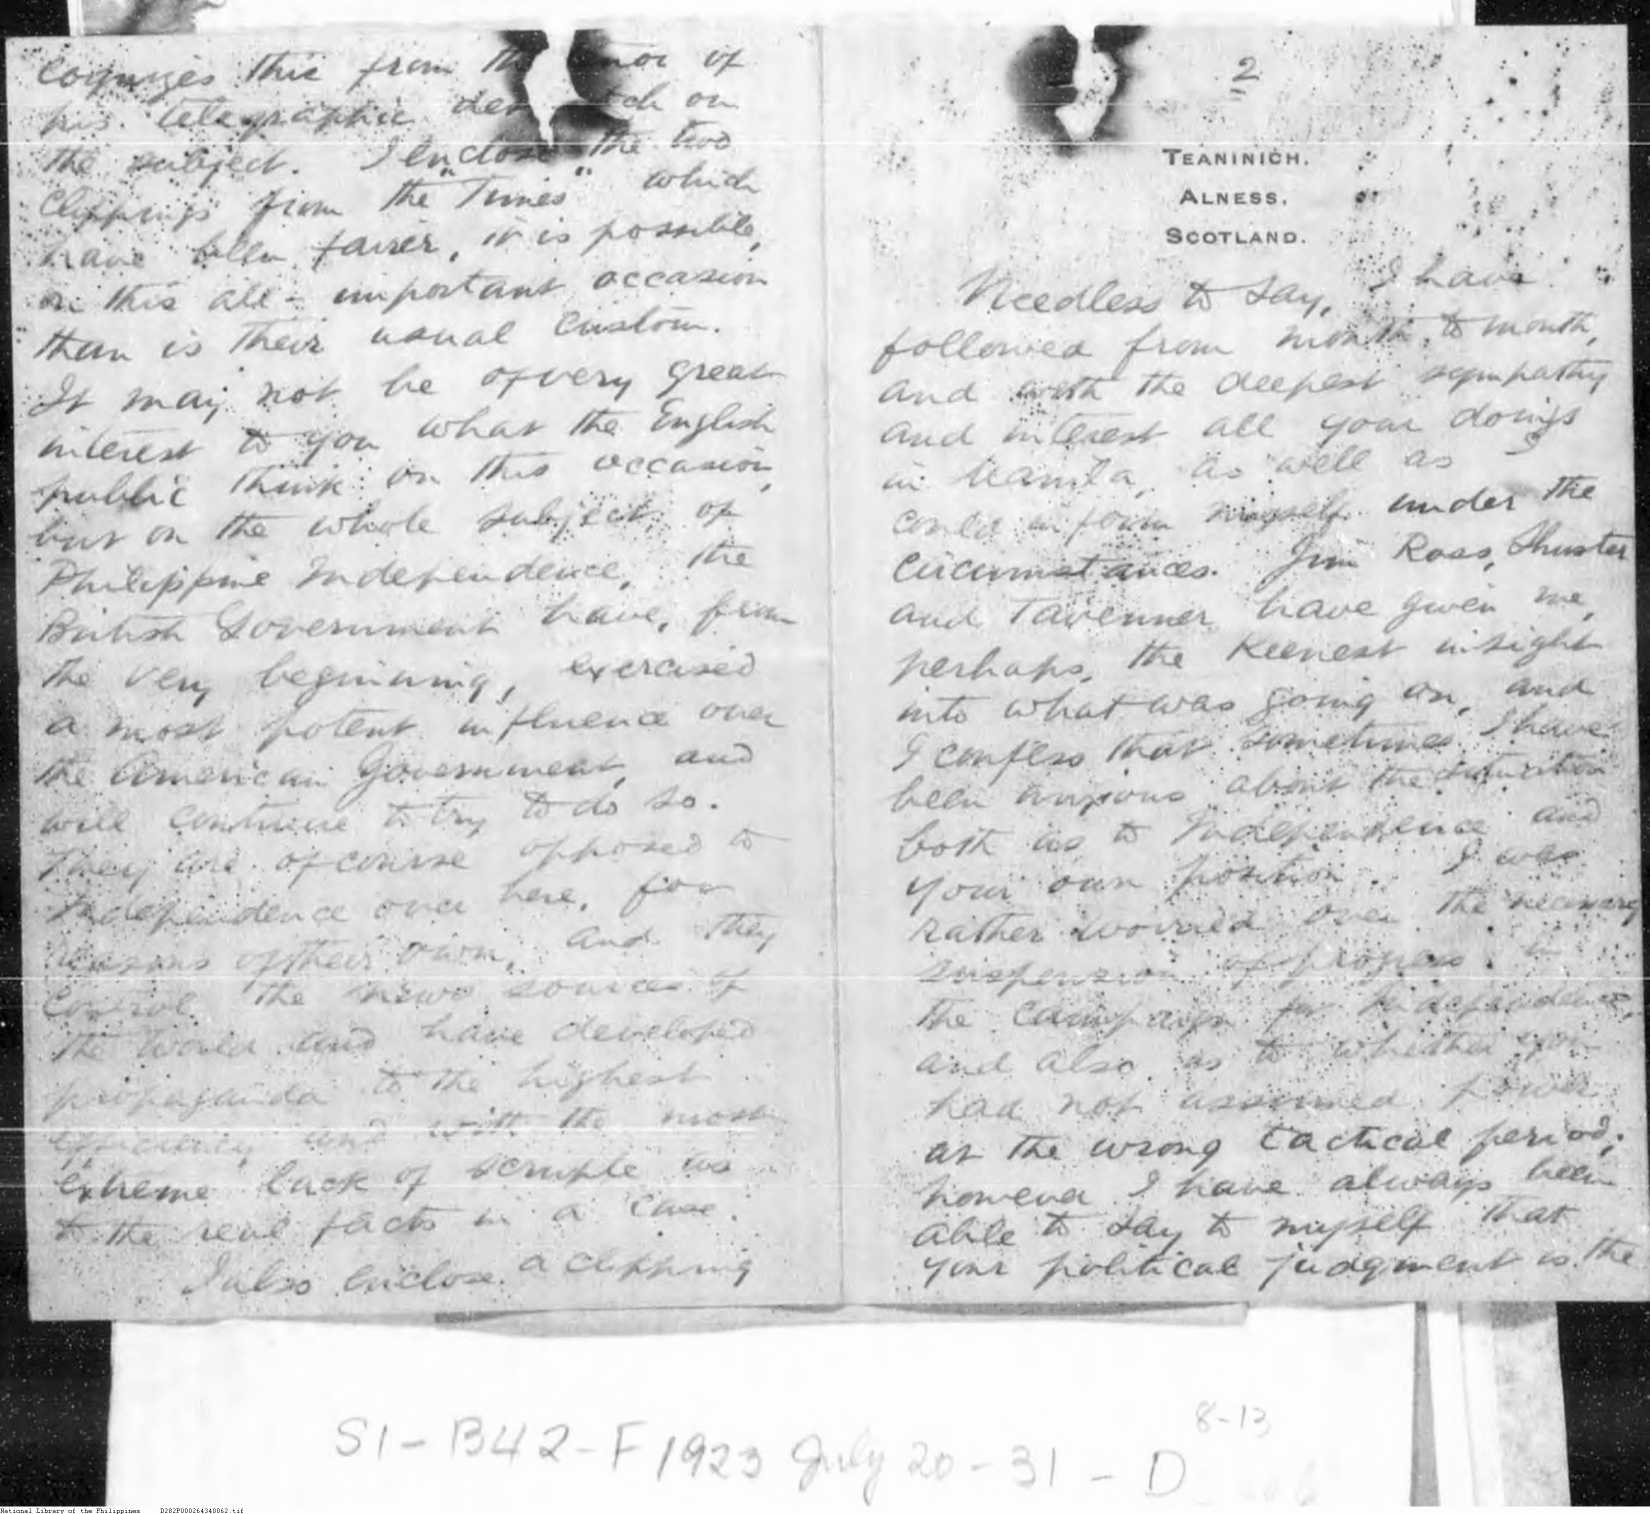 cognizes this from the of
his telegraphic on
the subject. I enclose the two
clippings from the "Times" which
have been fairer, it is possible,
on this all-important occasion
than is their usual custom.
It may not be of very great
interest to you what the English
public think on this occasion,
but on the whole subject of
Philippine Independence, the
British Government have, from
the very beginning, exercised
a most potent influence over
the American Government, and
will continue to try to do so.
They are of course opposed to
Independence over here, for
reasons of their own, and they
control the news sources of
the World and have developed
propaganda to the highest
efficiency and with the most
extreme lack of scruple as
to the real facts in a case.
I also enclose a clipping
2
TEANINICH.
ALNESS.
SCOTLAND.
Needless to say, I have
followed from month to month,
and with the deepest sympathy
and interest all your doings
in Manila, as well as I
could inform myself under the
circumstances. Jim Ross, Shuster
and Tavenner have given me,
perhaps, the keenest insight
into what was going on, and
I confess that sometimes I have
been anxious about the situation
both as to Independence and
your own position. I was
rather worried over the necessary
suspension of progress in
the campaign for Independence,
and also as to whether you
had not assumed power
at the wrong tactical period;
however I have always been
able to say to myself that
your political judgment is the
S1-B42-F1923 July 20-31-D 8-13
National Library of the Philippines D282P000264340062.tif